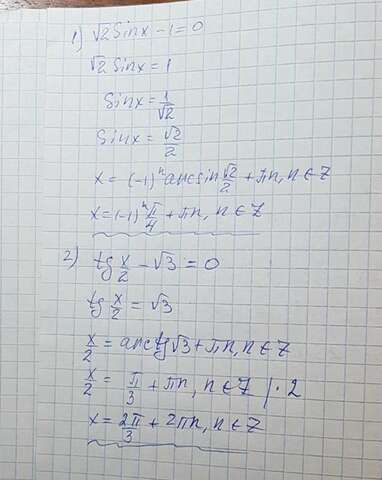 1) √2 Sinx - 1 = 0
√2 Sinx = 1
Sinx = 1/√2
Sinx = √2/2
x = (-1)ⁿ arcsin √2/2 + πn, n ∈ Z
x = (-1)ⁿ π/4 + πn, n ∈ Z
2) tg x/2 - √3 = 0
tg x/2 = √3
x/2 = arctg √3 + πn, n ∈ Z
x/2 = π/3 + πn, n ∈ Z | · 2
x = 2π/3 + 2πn, n ∈ Z